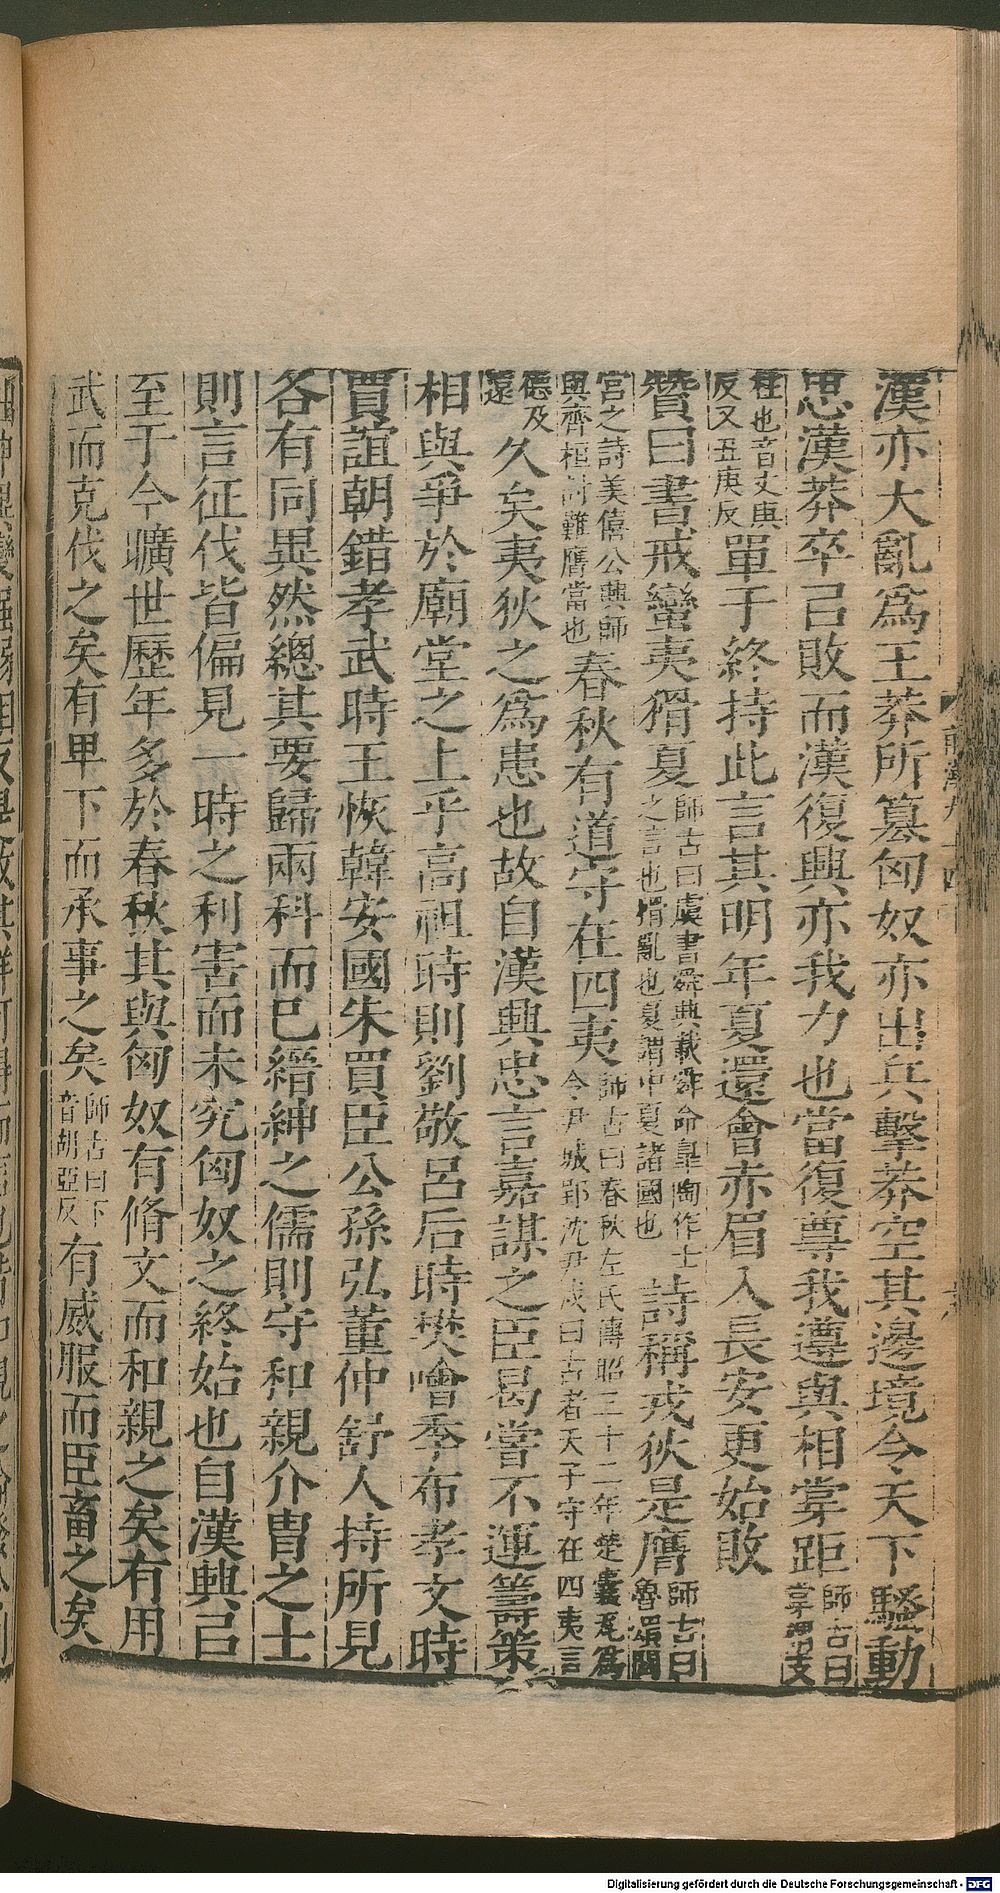 漢亦大亂爲王莽所篡匈奴亦出兵擊莽空其邊境令天下騷動
思漢莽卒㠯敗而漢復興亦我力也當復尊我遵與相掌距師古曰掌謂支
柱也音丈庚反又丑庚反單于終持此言其明年夏還會赤眉入長安更始敗
贊曰書戒蠻夷猾夏師古曰虞書舜典載舜命皐陶作士之言也猾亂也夏謂中夏諸國也詩稱戎狄是膺師古曰魯頌閟
宮之詩美僖公興師與齊桓討難膺當也春秋有道守在四夷師古曰春秋左氏傳昭三十二年楚囊瓦爲令尹城郢沈尹戌曰古者天子守在四夷言
德及遠久矣夷狄之爲患也故自漢興忠言嘉謀之臣曷嘗不運籌策
相與爭於廟堂之上乎高祖時則劉敬呂后時樊噲季布孝文時
賈誼朝錯孝武時王恢韓安國朱買臣公孫弘董仲舒人持所見
各有同異然總其要歸兩科而已縉紳之儒則守和親介胄之士
則言征伐皆偏見一時之利害而未究匈奴之終始也自漢興㠯
至于今曠世歷年多於春秋其與匈奴有脩文而和親之矣有用
武而克伐之矣有卑下而承事之矣師古曰下音胡亞反有威服而臣畜之矣
前漢九十四
Digitalisierung gefördert durch die Deutsche Forschungsgemeinschaft - DFG